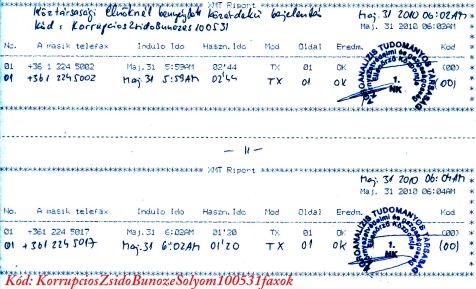 Köztársasági Elnöknél benyújtott közérdekű bejelentés Maj. 31 2010 06:02AM
Kód: KorrupciosZsidoBunozes100531 Maj. 31 2010 06:02AM
XMT Riport
No. A masik telefax Indulo Ido Haszn.Ido Mod Oldal Eredm. Kod
01 +36 1 224 5002 Maj.31 5:59AM 02'44 TX 01 OK (00)
01 +36 1 224 5002 Maj 31 5:59AM 02'44 TX 01 OK (00)
TUDOMANYOS TARSASAG
1.
NK
— 11 —
Maj. 31 2010 06:04AM
XMT Riport
Maj. 31 2010 06:04AM
No. A masik telefax Indulo Ido Haszn.Ido Mod Oldal Eredm. Kod
01 +361 224 5017 Maj.31 6:02AM 01'20 TX 01 OK (00)
01 +361 224 5017 Maj.31 6:02AM 01'20 TX 01 OK (00)
TUDOMANYOS TARSASAG
1.
NK
Kód: KorrupciosZsidoBunozeSolyom100531faxok